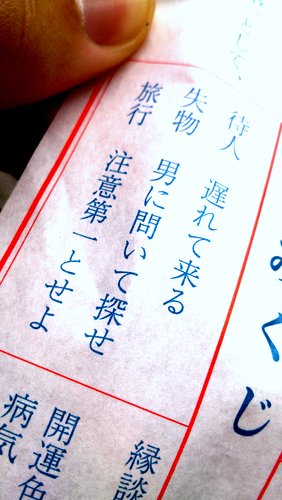 として、
おくじ
待人 遅れて来る
失物 男に問いて探せ
旅行 注意第一とせよ
縁談
開運色
病気